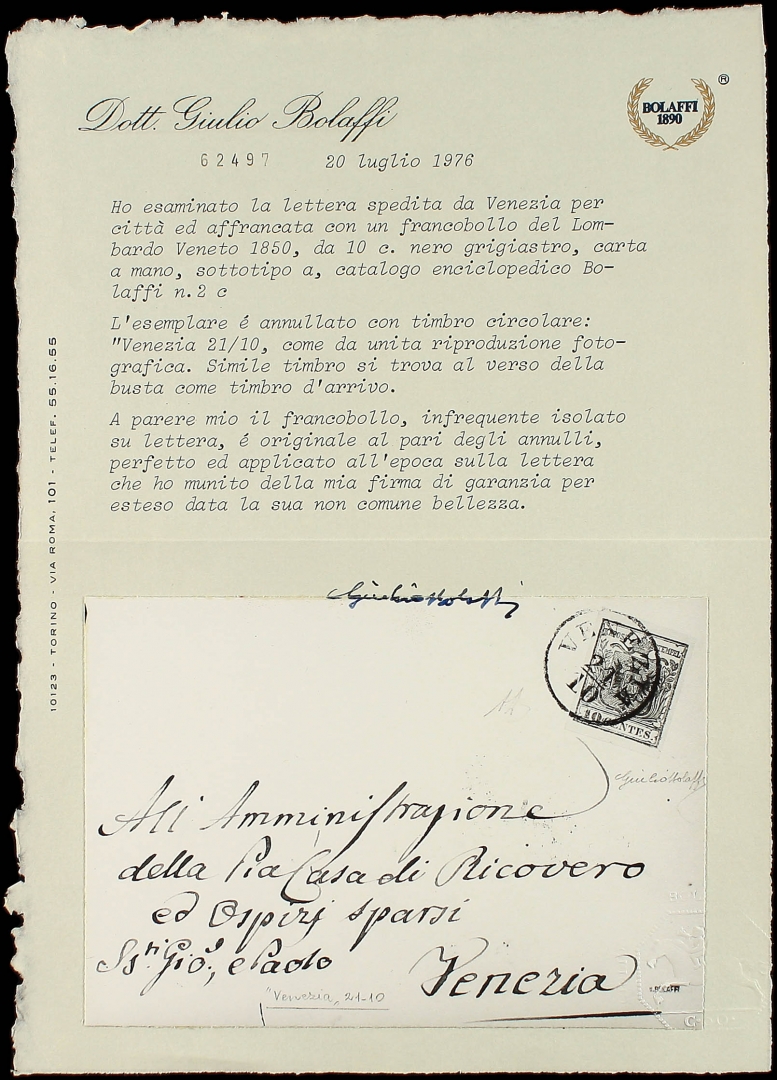 Dott. Giulio Bolaffi
BOLAFFI
1890
®
62497 20 luglio 1976
Ho esaminato la lettera spedita da Venezia per
città ed affrancata con un francobollo del Lom-
bardo Veneto 1850, da 10 c. nero grigiastro, carta
a mano, sottotipo a, catalogo enciclopedico Bo-
laffi n.2 c
L'esemplare é annullato con timbro circolare:
"Venezia 21/10, come da unita riproduzione foto-
grafica. Simile timbro si trova al verso della
busta come timbro d'arrivo.
A parere mio il francobollo, infrequente isolato
su lettera, é originale al pari degli annulli,
perfetto ed applicato all'epoca sulla lettera
che ho munito della mia firma di garanzia per
esteso data la sua non comune bellezza.
10123 - TORINO - VIA ROMA, 101 - TELEF. 55.16.55
Giulio Bolaffi
VENEZIA
21
10
STEMPEL
10 CENTES.
Giulio Bolaffi
All Amministrazione
della Pia Casa di Ricovero
ed Ospizj sparsi
Ss.ri Gio.e, e Paolo
Venezia
"Venezia, 21-10
BOLAFFI